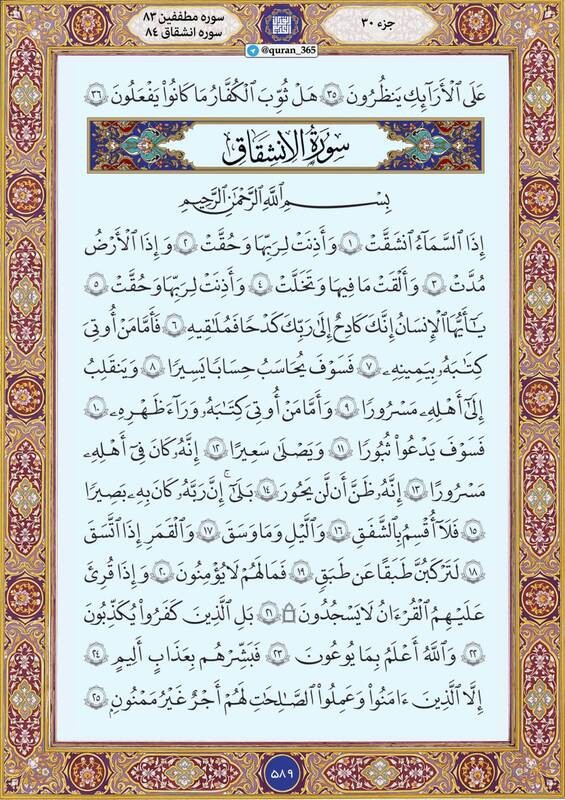 سوره مطففین ۸۳
سوره انشقاق ۸۴
جزء ۳۰
@quran_365
عَلَى ٱلْأَرَآئِكِ يَنظُرُونَ ۝٣٥ هَلْ ثُوِّبَ ٱلْكُفَّارُ مَا كَانُوا۟ يَفْعَلُونَ ۝٣٦
سورة الانشقاق
بِسْمِ ٱللَّهِ ٱلرَّحْمَٰنِ ٱلرَّحِيمِ
إِذَا ٱلسَّمَآءُ ٱنشَقَّتْ ۝١ وَأَذِنَتْ لِرَبِّهَا وَحُقَّتْ ۝٢ وَإِذَا ٱلْأَرْضُ
مُدَّتْ ۝٣ وَأَلْقَتْ مَا فِيهَا وَتَخَلَّتْ ۝٤ وَأَذِنَتْ لِرَبِّهَا وَحُقَّتْ ۝٥
يَٰٓأَيُّهَا ٱلْإِنسَٰنُ إِنَّكَ كَادِحٌ إِلَىٰ رَبِّكَ كَدْحًا فَمُلَٰقِيهِ ۝٦ فَأَمَّا مَنْ أُوتِىَ
كِتَٰبَهُۥ بِيَمِينِهِۦ ۝٧ فَسَوْفَ يُحَاسَبُ حِسَابًا يَسِيرًا ۝٨ وَيَنقَلِبُ
إِلَىٰٓ أَهْلِهِۦ مَسْرُورًا ۝٩ وَأَمَّا مَنْ أُوتِىَ كِتَٰبَهُۥ وَرَآءَ ظَهْرِهِۦ ۝١٠
فَسَوْفَ يَدْعُوا۟ ثُبُورًا ۝١١ وَيَصْلَىٰ سَعِيرًا ۝١٢ إِنَّهُۥ كَانَ فِىٓ أَهْلِهِۦ
مَسْرُورًا ۝١٣ إِنَّهُۥ ظَنَّ أَن لَّن يَحُورَ ۝١٤ بَلَىٰٓ إِنَّ رَبَّهُۥ كَانَ بِهِۦ بَصِيرًا
۝١٥ فَلَآ أُقْسِمُ بِٱلشَّفَقِ ۝١٦ وَٱلَّيْلِ وَمَا وَسَقَ ۝١٧ وَٱلْقَمَرِ إِذَا ٱتَّسَقَ
۝١٨ لَتَرْكَبُنَّ طَبَقًا عَن طَبَقٍ ۝١٩ فَمَا لَهُمْ لَا يُؤْمِنُونَ ۝٢٠ وَإِذَا قُرِئَ
عَلَيْهِمُ ٱلْقُرْءَانُ لَا يَسْجُدُونَ ۩ ۝٢١ بَلِ ٱلَّذِينَ كَفَرُوا۟ يُكَذِّبُونَ
۝٢٢ وَٱللَّهُ أَعْلَمُ بِمَا يُوعُونَ ۝٢٣ فَبَشِّرْهُم بِعَذَابٍ أَلِيمٍ ۝٢٤
إِلَّا ٱلَّذِينَ ءَامَنُوا۟ وَعَمِلُوا۟ ٱلصَّٰلِحَٰتِ لَهُمْ أَجْرٌ غَيْرُ مَمْنُونٍۭ ۝٢٥
۵۸۹